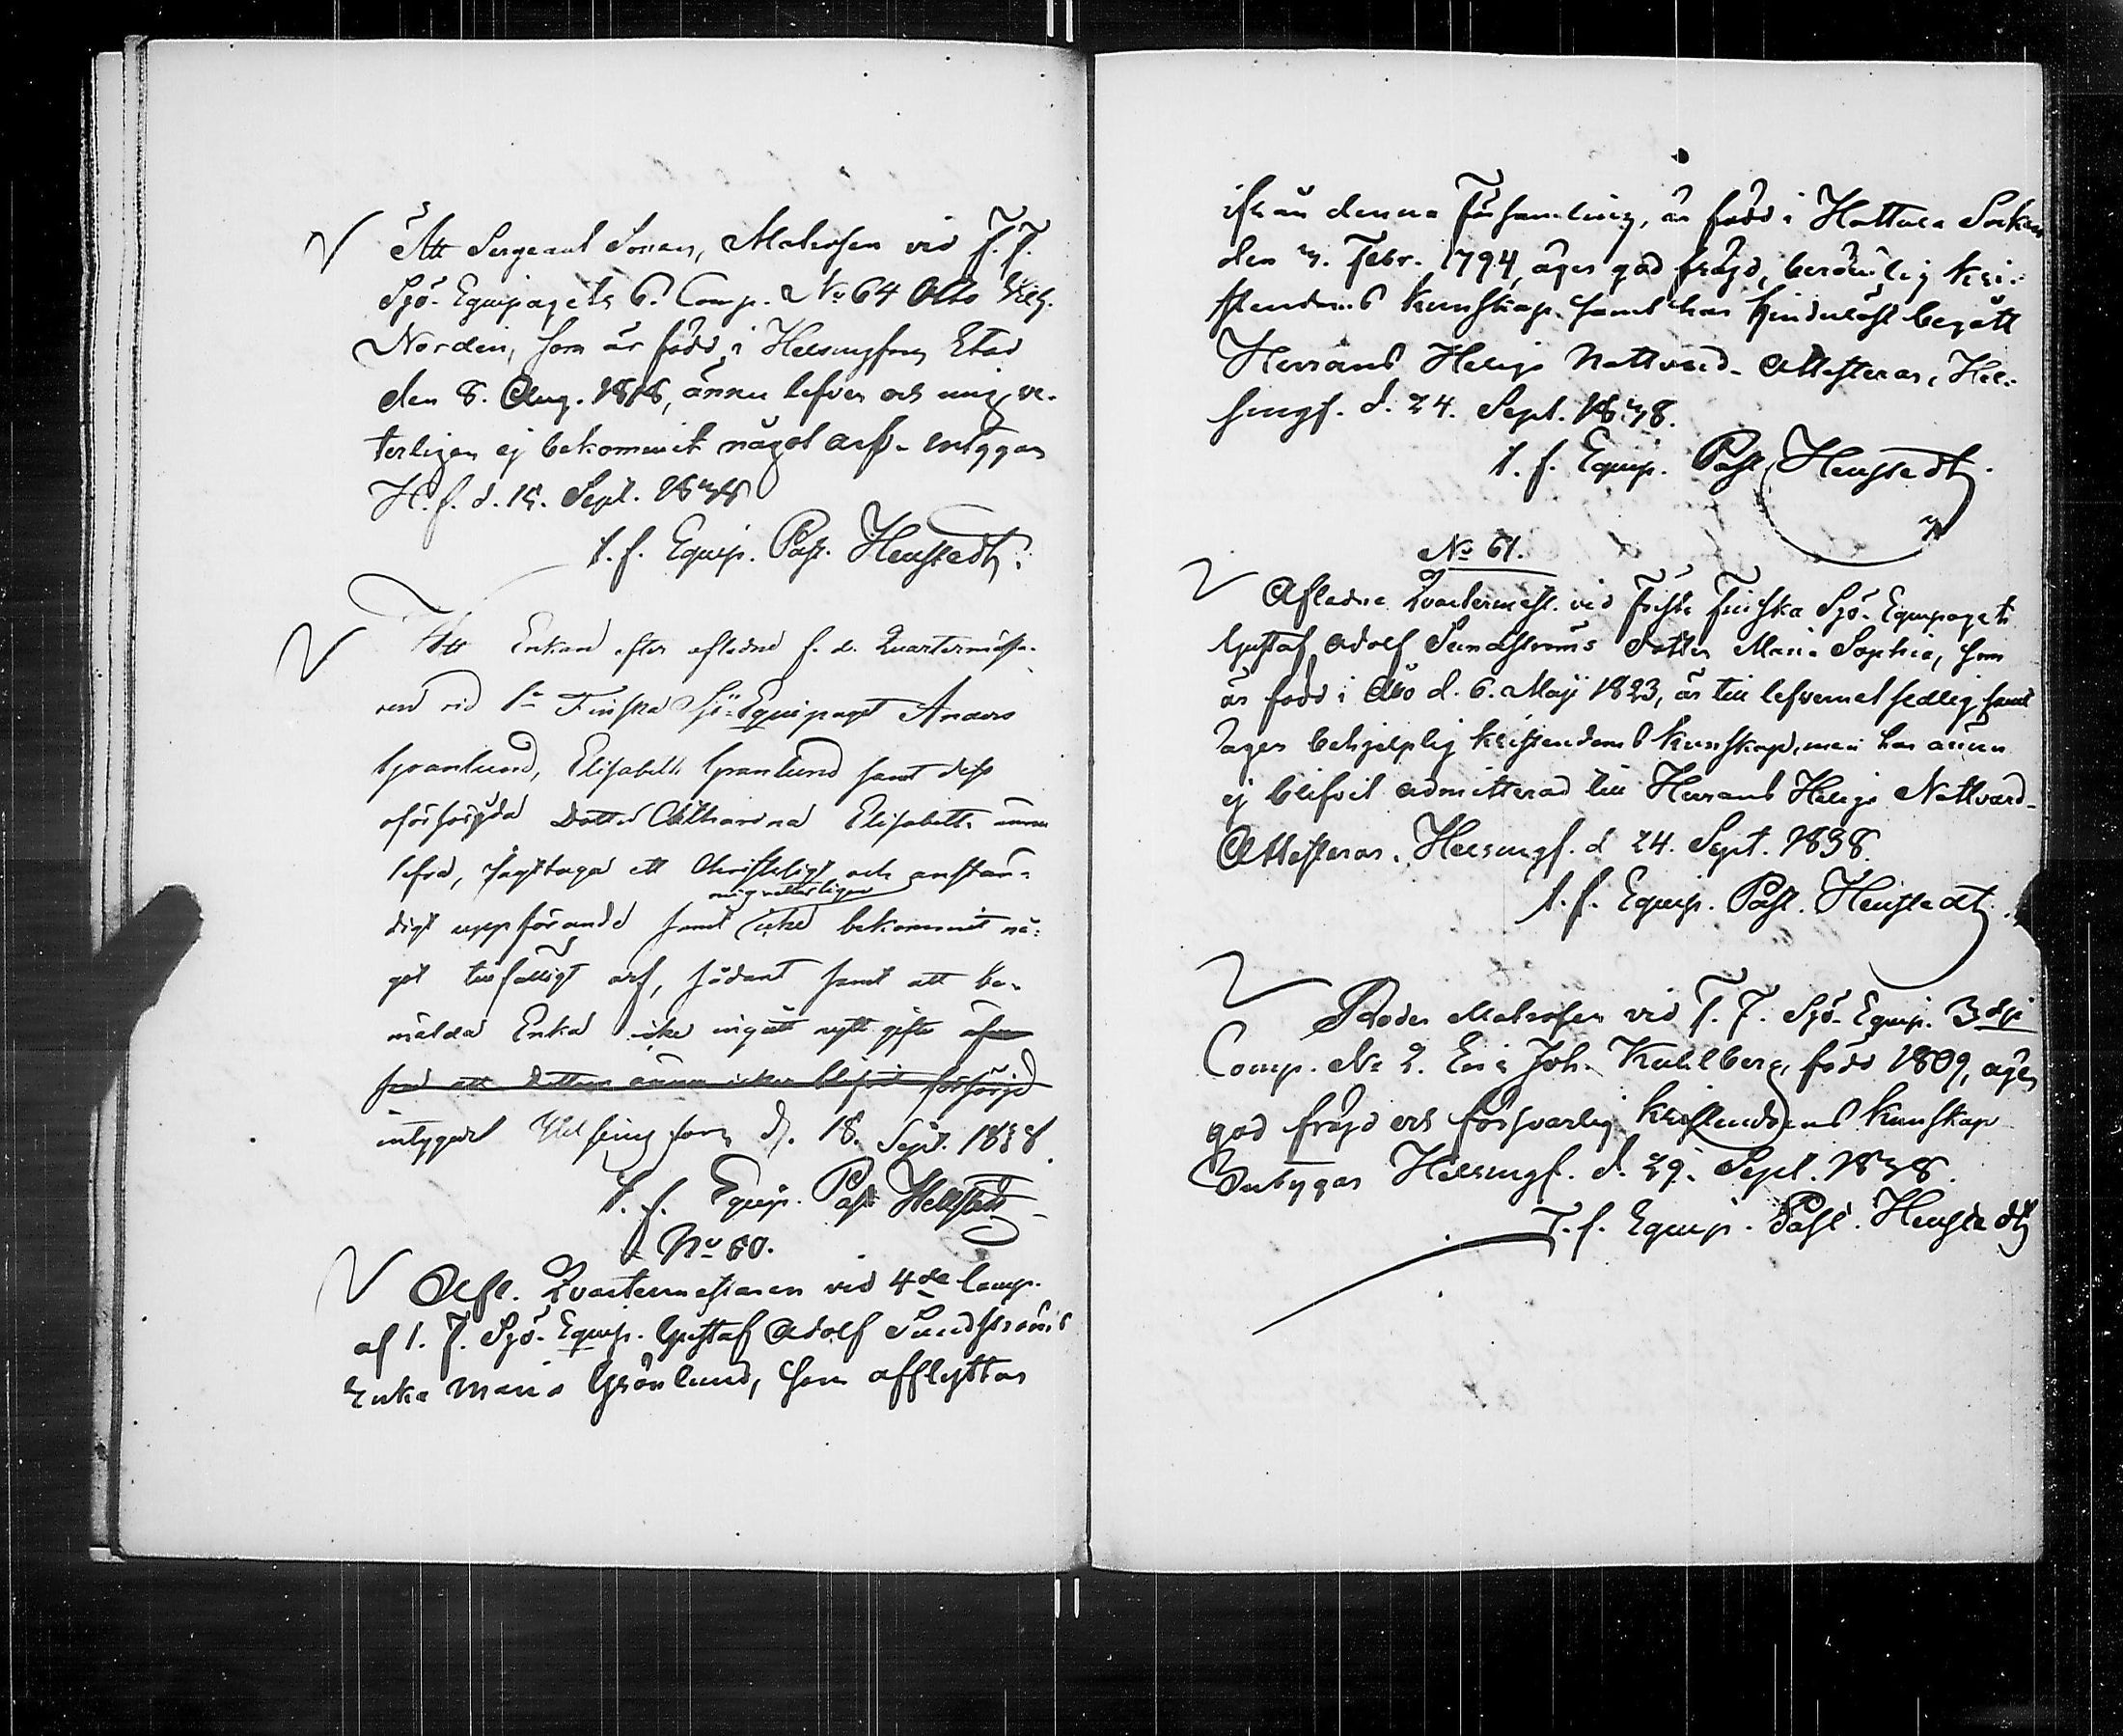 Att Sergeant Sonen, Matrosen vid F. F.
Sjö-Equipagets 6. Comp. No 64 Otto Vilh.
Nordin, som är född i Helsingfors Stad
den 8. Aug. 1818, ännu lefver och mig ve-
terligen ej bekommit något arf - intygar
H.f. d. 15. Sept. 1838
t. f. Equip. Past. Henstedt.
Att Enkan efter aflidne f. d. Quartermästa-
ren vid 1a Finska Sjö-Equipaget Anders
Granlund, Elisabeth Granlund samt dess
oförsörjda Dotter Catharina Elisabeth ännu
lefva, iagttaga ett Christeligt och anstän-
mig vetterligen
digt uppförande samt icke bekommit nå-
got tillfälligt arf, sådant samt att be-
mälda Enka icke ingått nytt gifte äfven
som att dottren ännu icke blifvit försörjd
intygas Helsingfors d. 18. Sept. 1838.
t. f. Equip. Past Hellstedt
No 60.
Afl. Qvartermästaren vid 4de Comp.
af 1. F. Sjö-Equip. Gustaf Adolf Sundströms
Enka Maria Grönlund, som afflyttar
ifrån denna Församling, är född i Hattula Socken
den 3. Febr. 1794, äger god frägd, berömlig kri-
stendoms kunskap samt har hinderlöst begått
Herrans Heliga Nattvard - Attesteras, Hel-
singf. d. 24. Sept. 1838.
t. f. Equip. Past Henstedt.
No 61.
Aflidne Qvartermäst. vid Första Finska Sjö-Equipaget
Gustaf Adolf Sundströms Dotter Maria Sophia, som
är född i Åbo d. 6. Maji 1823, är till lefvernet sedlig samt
äger behjelplig kristendoms kunskap, men har ännu
ej blifvit admitterad till Herrans Heliga Nattvard -
Attesteras. Helsingf. d 24. Sept. 1838.
t. f. Equip. Past. Henstedt.
Matrosen vid F. F. Sjö-Equip. 3dje
Comp. No 2. Eric Joh. Kullberg, född 1809, äger
god frägd och försvarlig kristendoms kunskap
Intygas Helsingf. d. 29. Sept. 1838.
T. f. Equip. Past. Henstedt